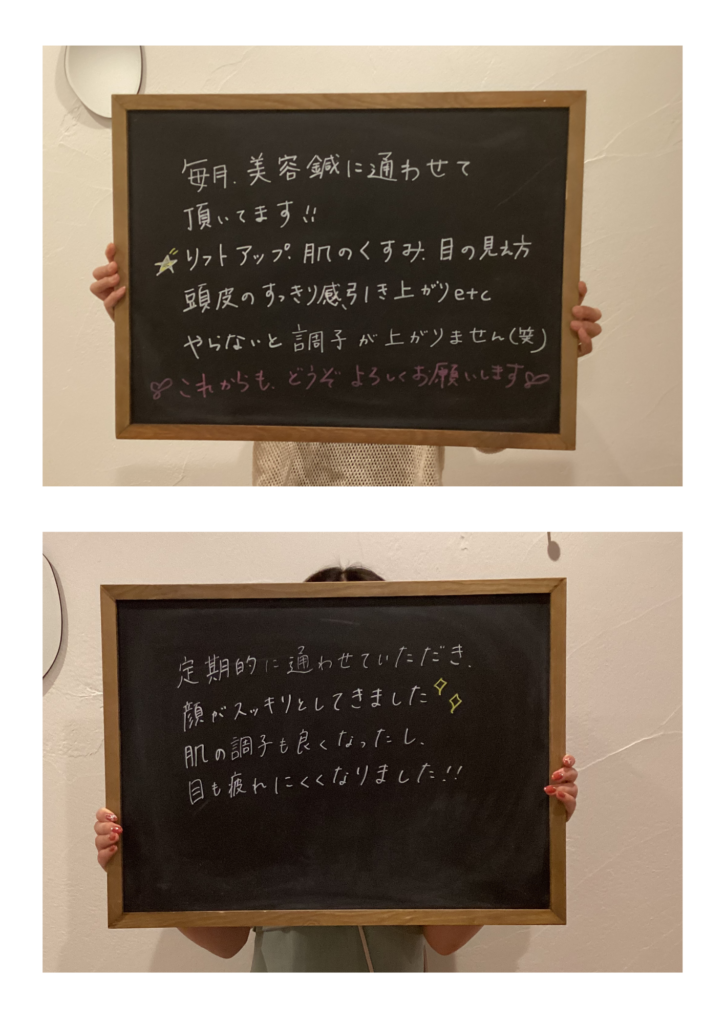 毎月、美容鍼に通わせて
頂いてます!!
リフトアップ、肌のくすみ、目の見え方
頭皮のすっきり感、引き上がりetc
やらないと調子が上がりません(笑)
これからも、どうぞよろしくお願いします
定期的に通わせていただき、
顔がスッキリとしてきました
肌の調子も良くなったし、
目も疲れにくくなりました!!